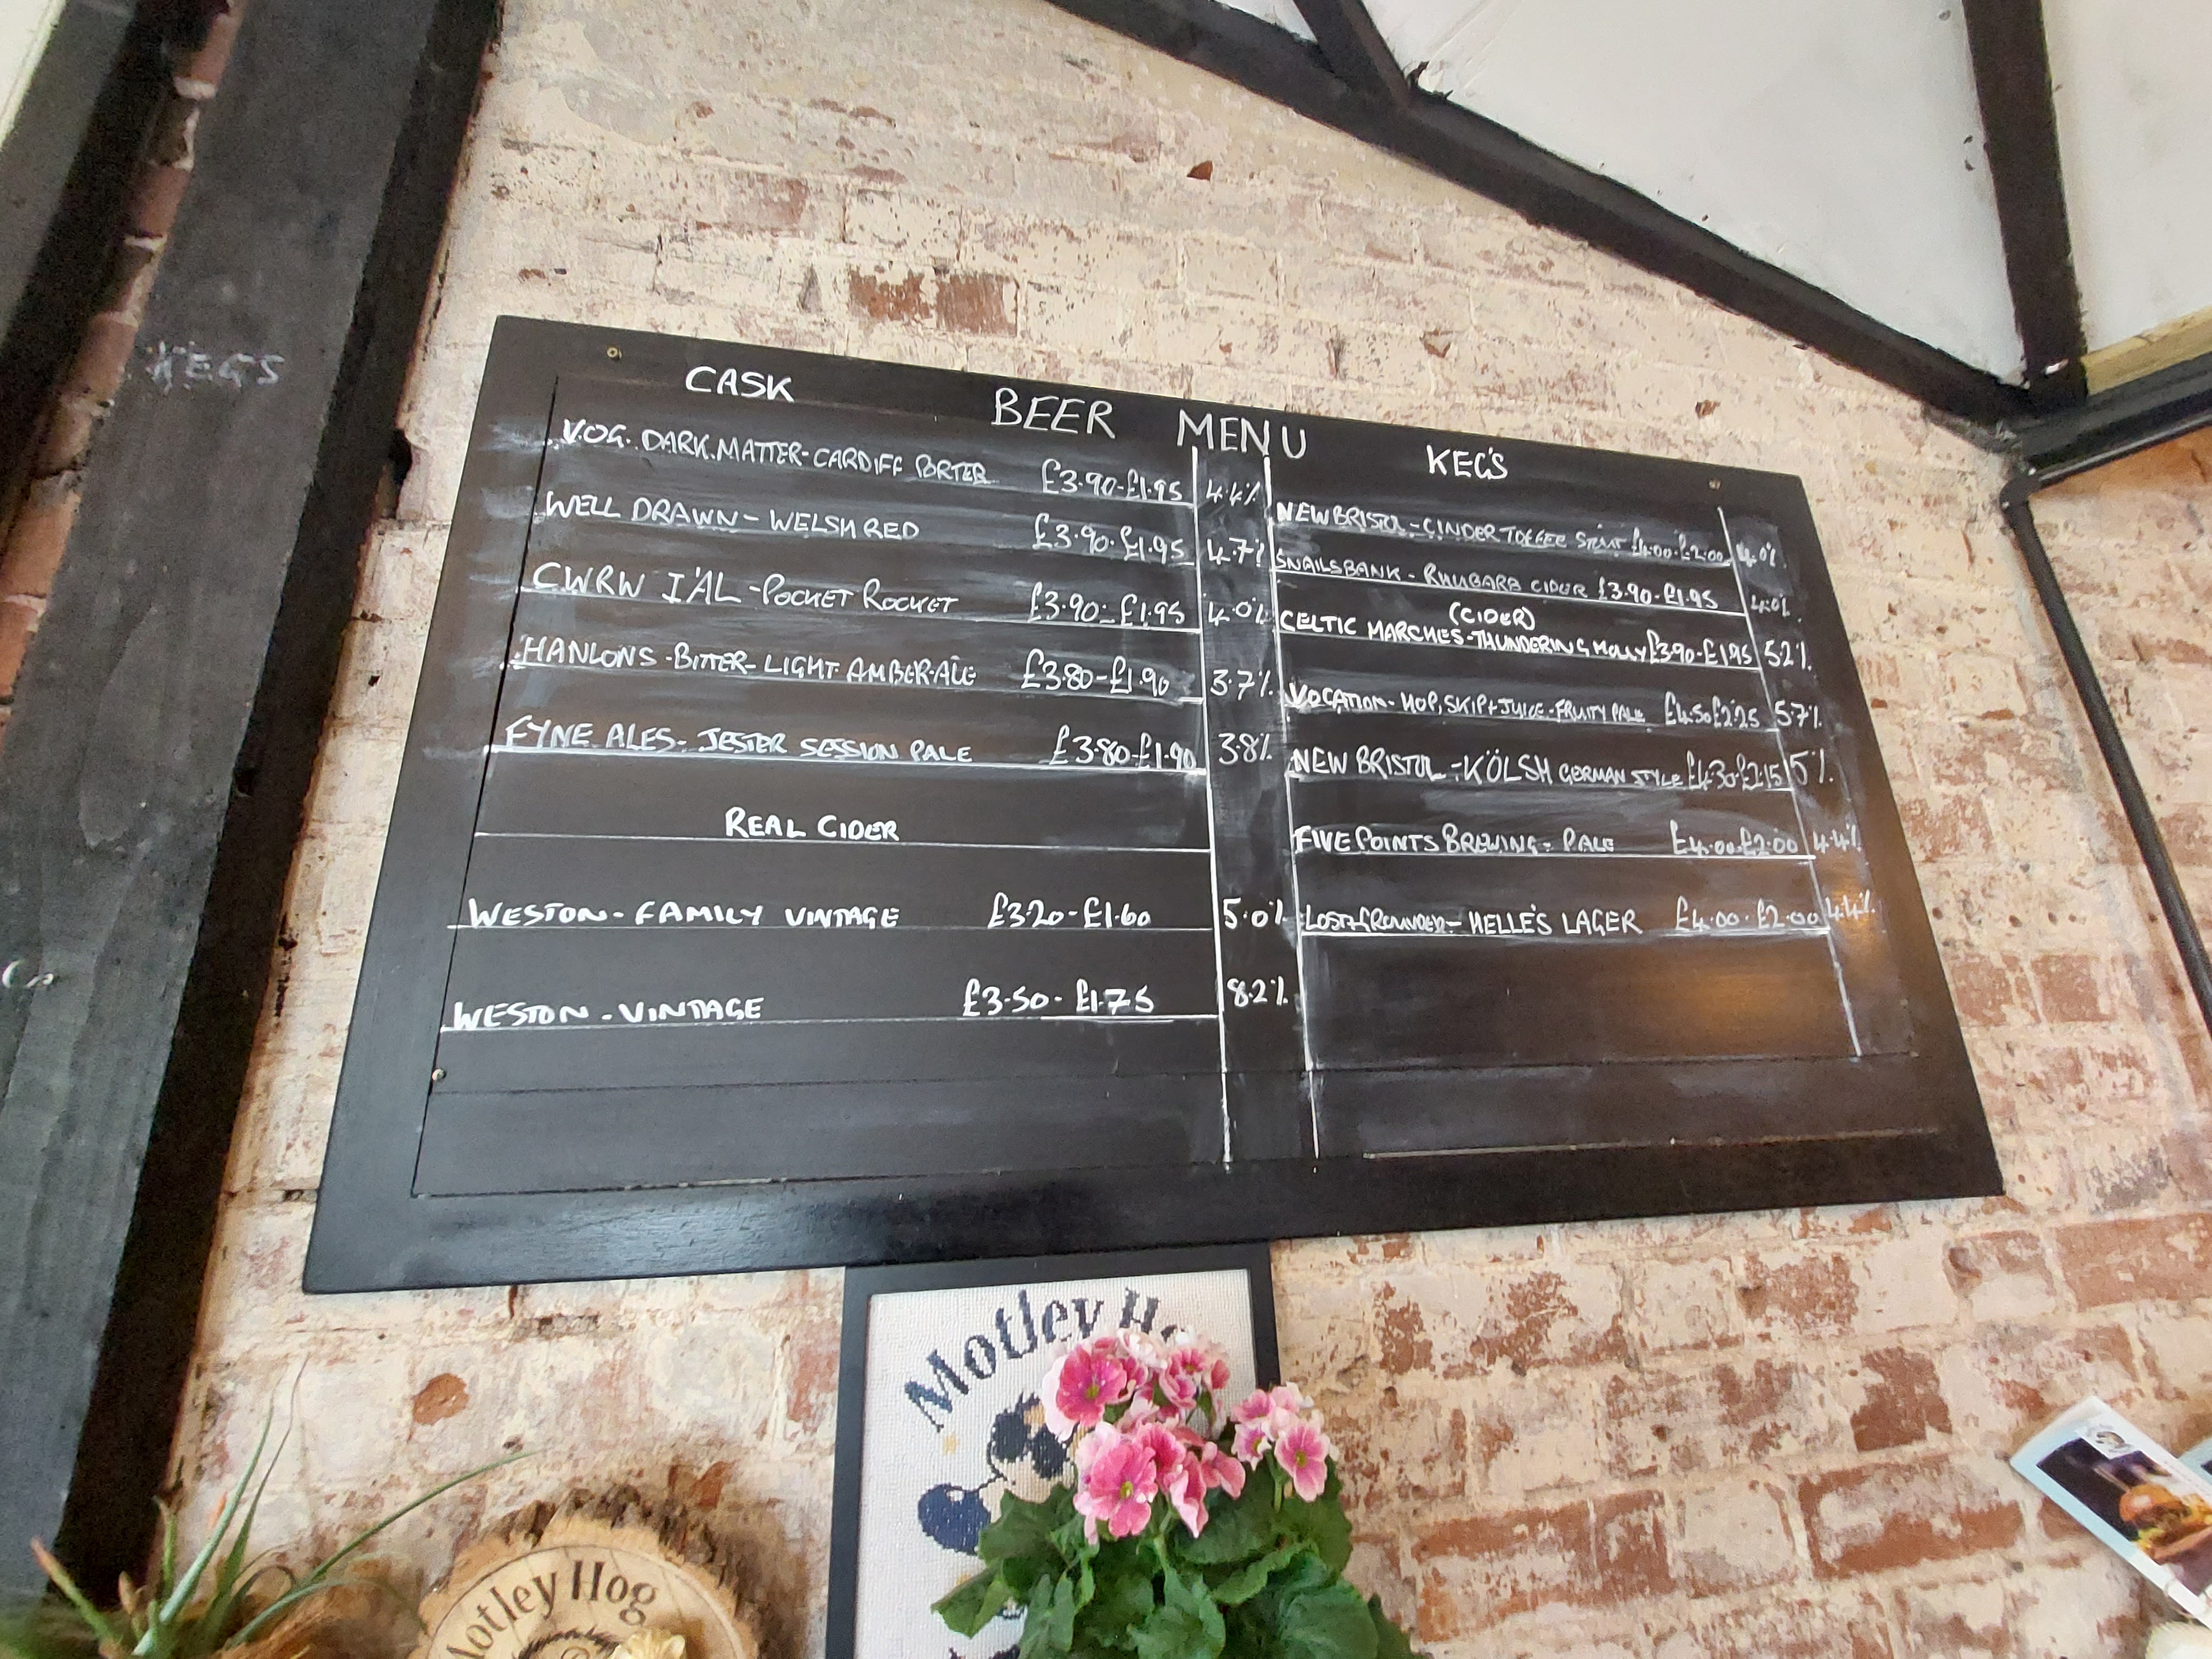 KEGS
BEER MENU
CASK
V.O.G. DARK MATTER - CARDIFF PORTER £3.90 - £1.95 4.4%
WELL DRAWN - WELSH RED £3.90 - £1.95 4.7%
CWRW I'AL - POCKET ROCKET £3.90 - £1.95 4.0%
HANLONS - BITTER - LIGHT AMBER ALE £3.80 - £1.90 3.7%
FYNE ALES - JESTER SESSION PALE £3.80 - £1.90 3.8%
REAL CIDER
WESTON - FAMILY VINTAGE £3.20 - £1.60 5.0%
WESTON - VINTAGE £3.50 - £1.75 8.2%
KEG'S
NEW BRISTOL - CINDER TOFFEE STOUT £4.00 - £2.00 4.0%
SNAILSBANK - RHUBARB CIDER £3.90 - £1.95 4.0%
(CIDER)
CELTIC MARCHES - THUNDERING MOLLY £3.90 - £1.95 5.2%
VOCATION - HOP, SKIP + JUICE - FRUITY PALE £4.50 £2.25 5.7%
NEW BRISTOL - KÖLSH GERMAN STYLE £4.30 £2.15 5%
FIVE POINTS BREWING - PALE £4.00 - £2.00 4.4%
LOST + GROUNDED - HELLE'S LAGER £4.00 - £2.00 4.4%
Motley Ho
Motley Hog